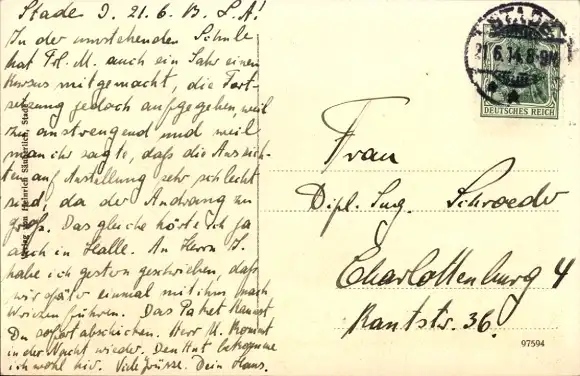 Stade D. 21.6.13. L.A!
In der umstehenden Schule
hat Frl. M. auch ein Jahr einen
Kursus mitgemacht, die Fort-
setzung jedoch aufgegeben, weil
zu anstrengend und weil
man ihr sagte, daß die Aussich-
ten auf Anstellung sehr schlecht
sind, da der Andrang zu
groß. Das gleiche hörte ich ja
auch in Halle. An Herrn J.
habe ich gestern geschrieben, daß
wir später einmal mit ihm nach
Wriezen führen. Das Paket kannst
Du sofort abschicken. Herr M. kommt
in der Nacht wieder. Den Hut bekomme
ich wohl hier. Viele Grüsse. Dein Hans.
Verlag von Heinrich Säuberlich, Stade
STADE
21.6.14.8-9N
DEUTSCHES REICH
Frau
Dipl. Ing. Schroeder
Charlottenburg 4
Kantstr. 36.
97594